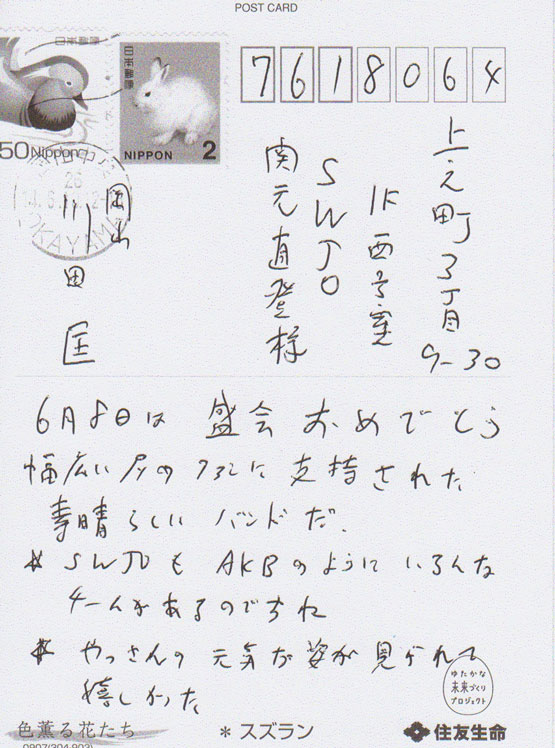 POST CARD
日本郵便
日本郵便
50 Nippon
NIPPON 2
26
OKAYAMA
7618064
上之町3丁目
9-30
1F西号室
SWJO
関元直登様
岡山
川田 匡
6月8日は 盛会 おめでとう
幅広い層の方々に支持された
素晴らしい バンドだ.
* SWJOも AKBのように いろんな
チームがあるのですね
* やっさんの 元気な姿が 見られて
嬉しかった
ゆたかな
未来づくり
プロジェクト
色薫る花たち
* スズラン
住友生命
0907(304-903)